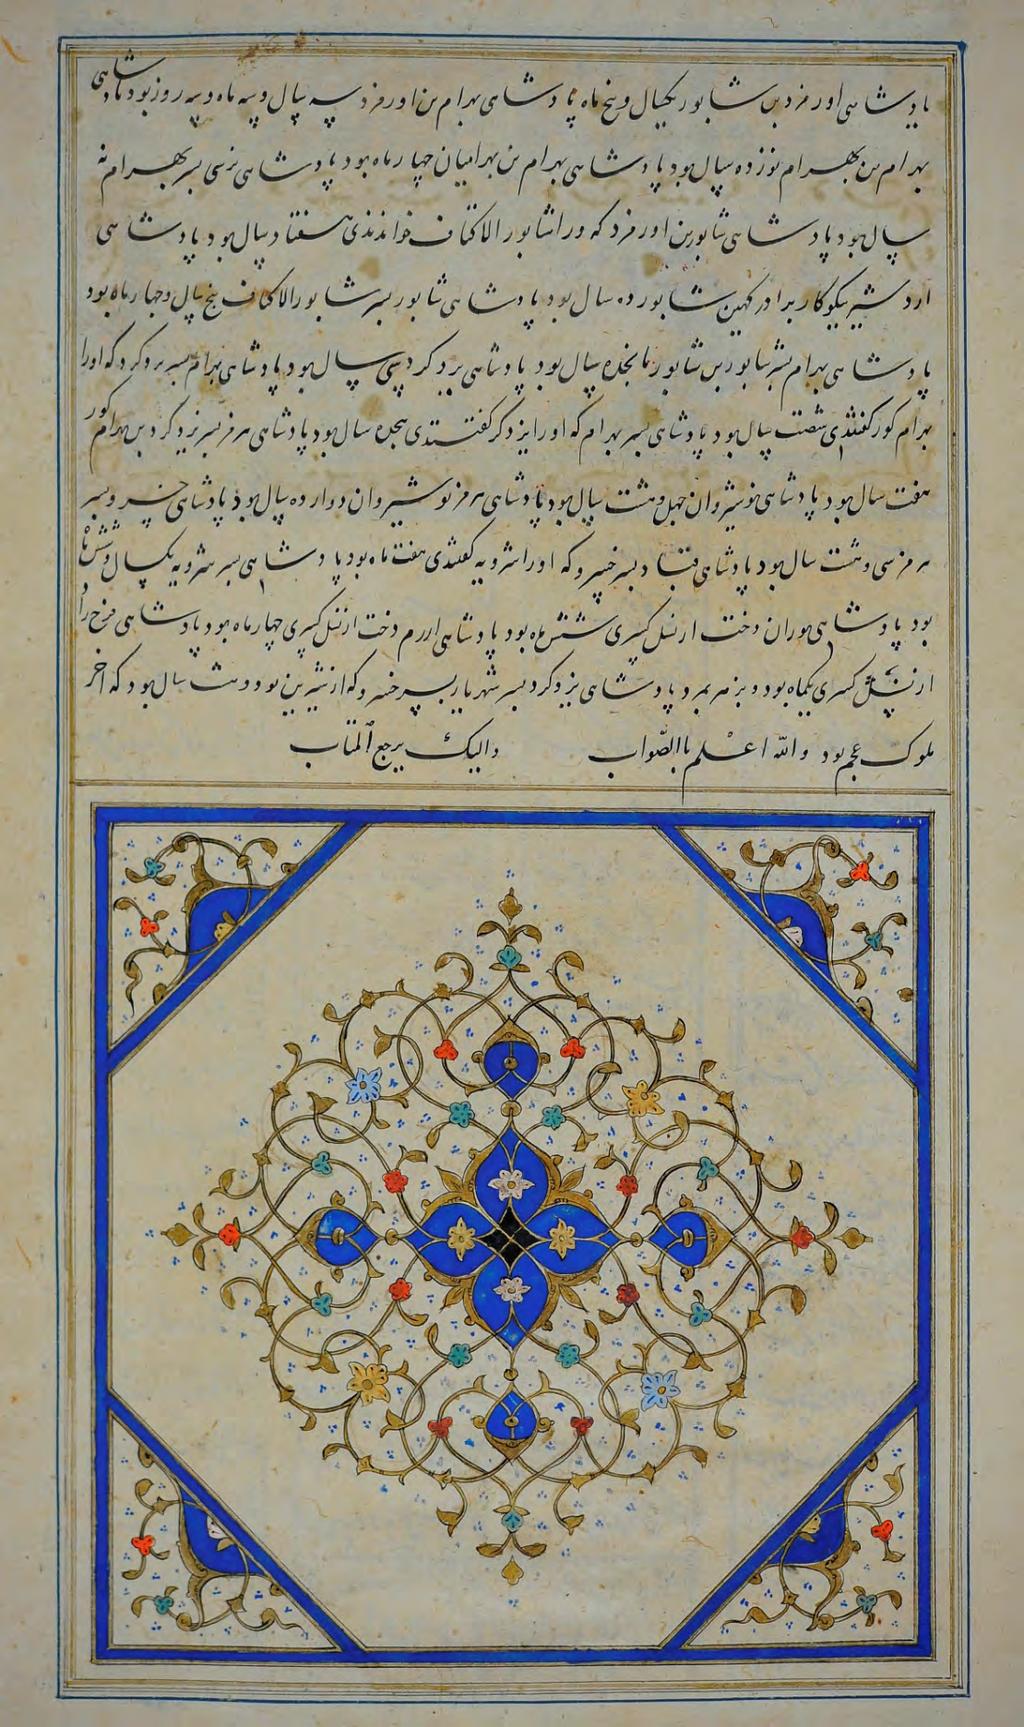 پادشاهی اورمزد بن شابور یکسال و پنج ماه پادشاهی بهرام بن اورمزد سه سال و سه ماه و سه روز بود پادشاهی
بهرام بن بهرام نوزده سال بود پادشاهی بهرام بن بهرامیان چهار ماه بود پادشاهی نرسی بسر بهرام نه
سال بود پادشاهی شابور بن اورمزد که ورا شابور الاکتاف خواندندی هفتاد سال بود پادشاهی
اردشیر نیکوکار برادر کهین شابور ده سال بود پادشاهی شابور بسر شابور الاکتاف پنج سال و چهار ماه بود
پادشاهی بهرام بسر شابور بن شابور پانجده سال بود پادشاهی یزدکرد سی سال بود پادشاهی بهرام بسر یزدکرد که او را
بهرام کور کفتندی شصت سال بود پادشاهی بسر بهرام که او را ایزدکرد کفتندی هجده سال بود پادشاهی هرمز بسر یزدکرد بن بهرام کور
هفت سال بود پادشاهی نوشیروان چهل و هشت سال بود پادشاهی هرمز نوشیروان دوازده سال بود پادشاهی خسرو بسر
هرمز سی و هشت سال بود پادشاهی قباد بسر خسرو که او را شرویه کفتندی هفت ماه بود پادشاهی بسر شرویه یکسال و شش ماه
بود پادشاهی بوران دخت از نسل کسری شش ماه بود پادشاهی ازرم دخت از نسل کسری چهار ماه بود پادشاهی فرخ زاد
از نسل کسری یکماه بود و بزهر بمرد پادشاهی یزدکرد بسر شهریار بسر خسرو که از شیرین بود و هشت سال بود که اخر
ملوک عجم بود والله اعلم باالصواب والیک یرجع المتاب